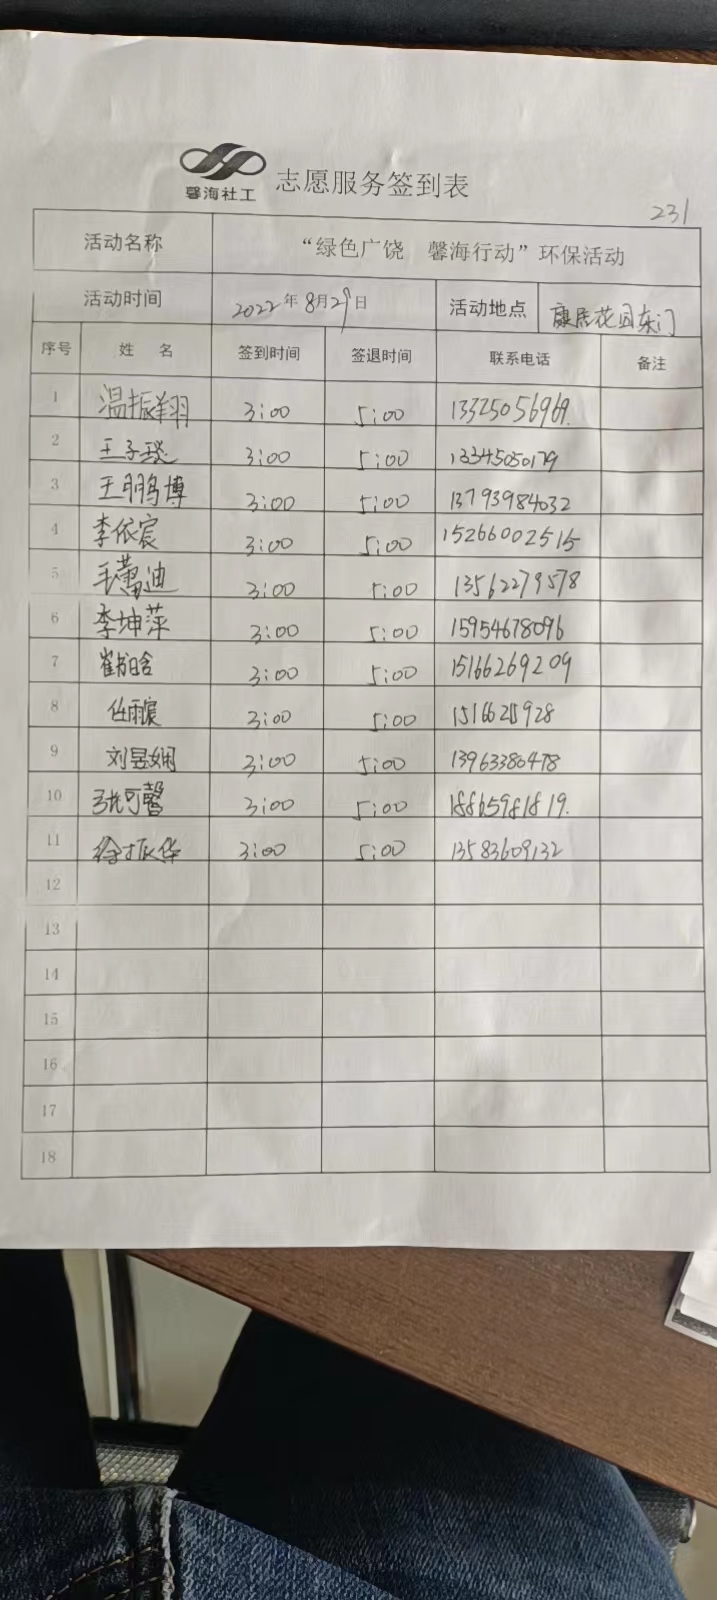 馨海社工 志愿服务签到表
231
活动名称 “绿色广饶 馨海行动”环保活动
活动时间 2022年8月29日 活动地点 康居花园东门
序号 姓 名 签到时间 签退时间 联系电话 备注
1 温振翔 3:00 5:00 13325056969.
2 王子琰 3:00 5:00 13345050179
3 王鹏博 3:00 5:00 13793984032
4 李依宸 3:00 5:00 15266002515
5 毛蕾迪 3:00 5:00 13562279578
6 李坤萍 3:00 5:00 15954678096
7 3:00 5:00 15166269209
8 任雨宸 3:00 5:00
9 刘昱娴 3:00 5:00 13963380478
10 张可馨 3:00 5:00 18865981819.
11 徐振华 3:00 5:00 13583609132
12
13
14
15
16
17
18